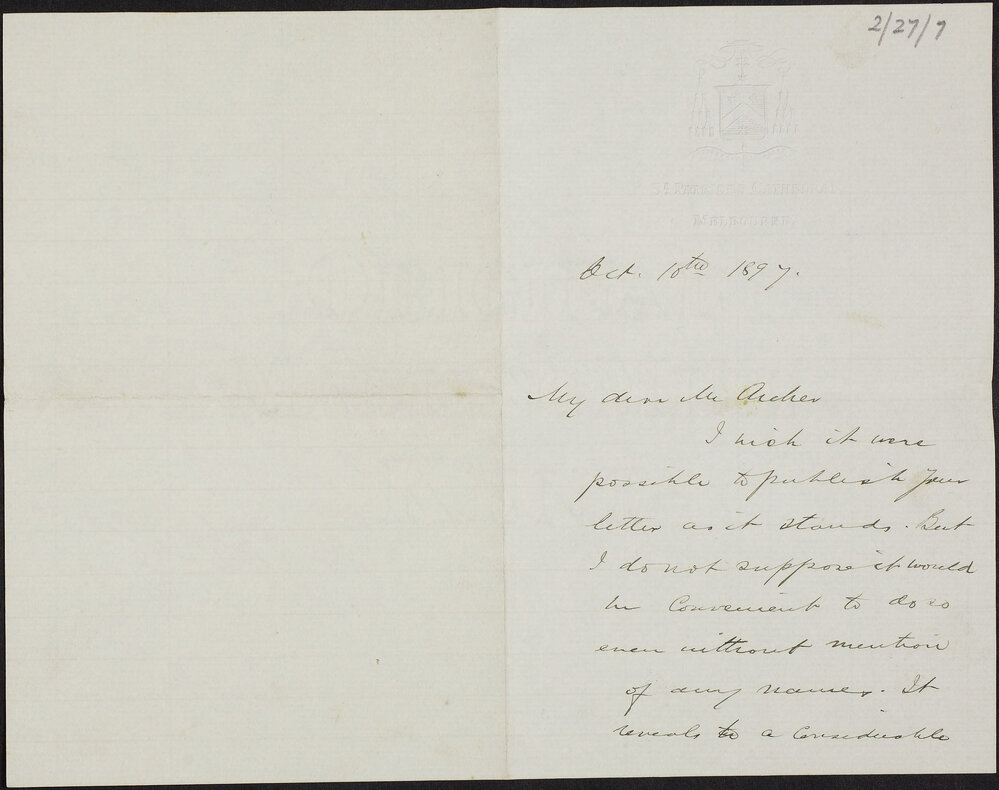 2/27/7
St Patrick's Cathedral
Melbourne
Oct. 10th 1897.
My dear Mr Archer
I wish it were
possible to publish your
letter as it stands. But
I do not suppose it would
be convenient to do so
even without mention
of any names. It
reveals to a considerable